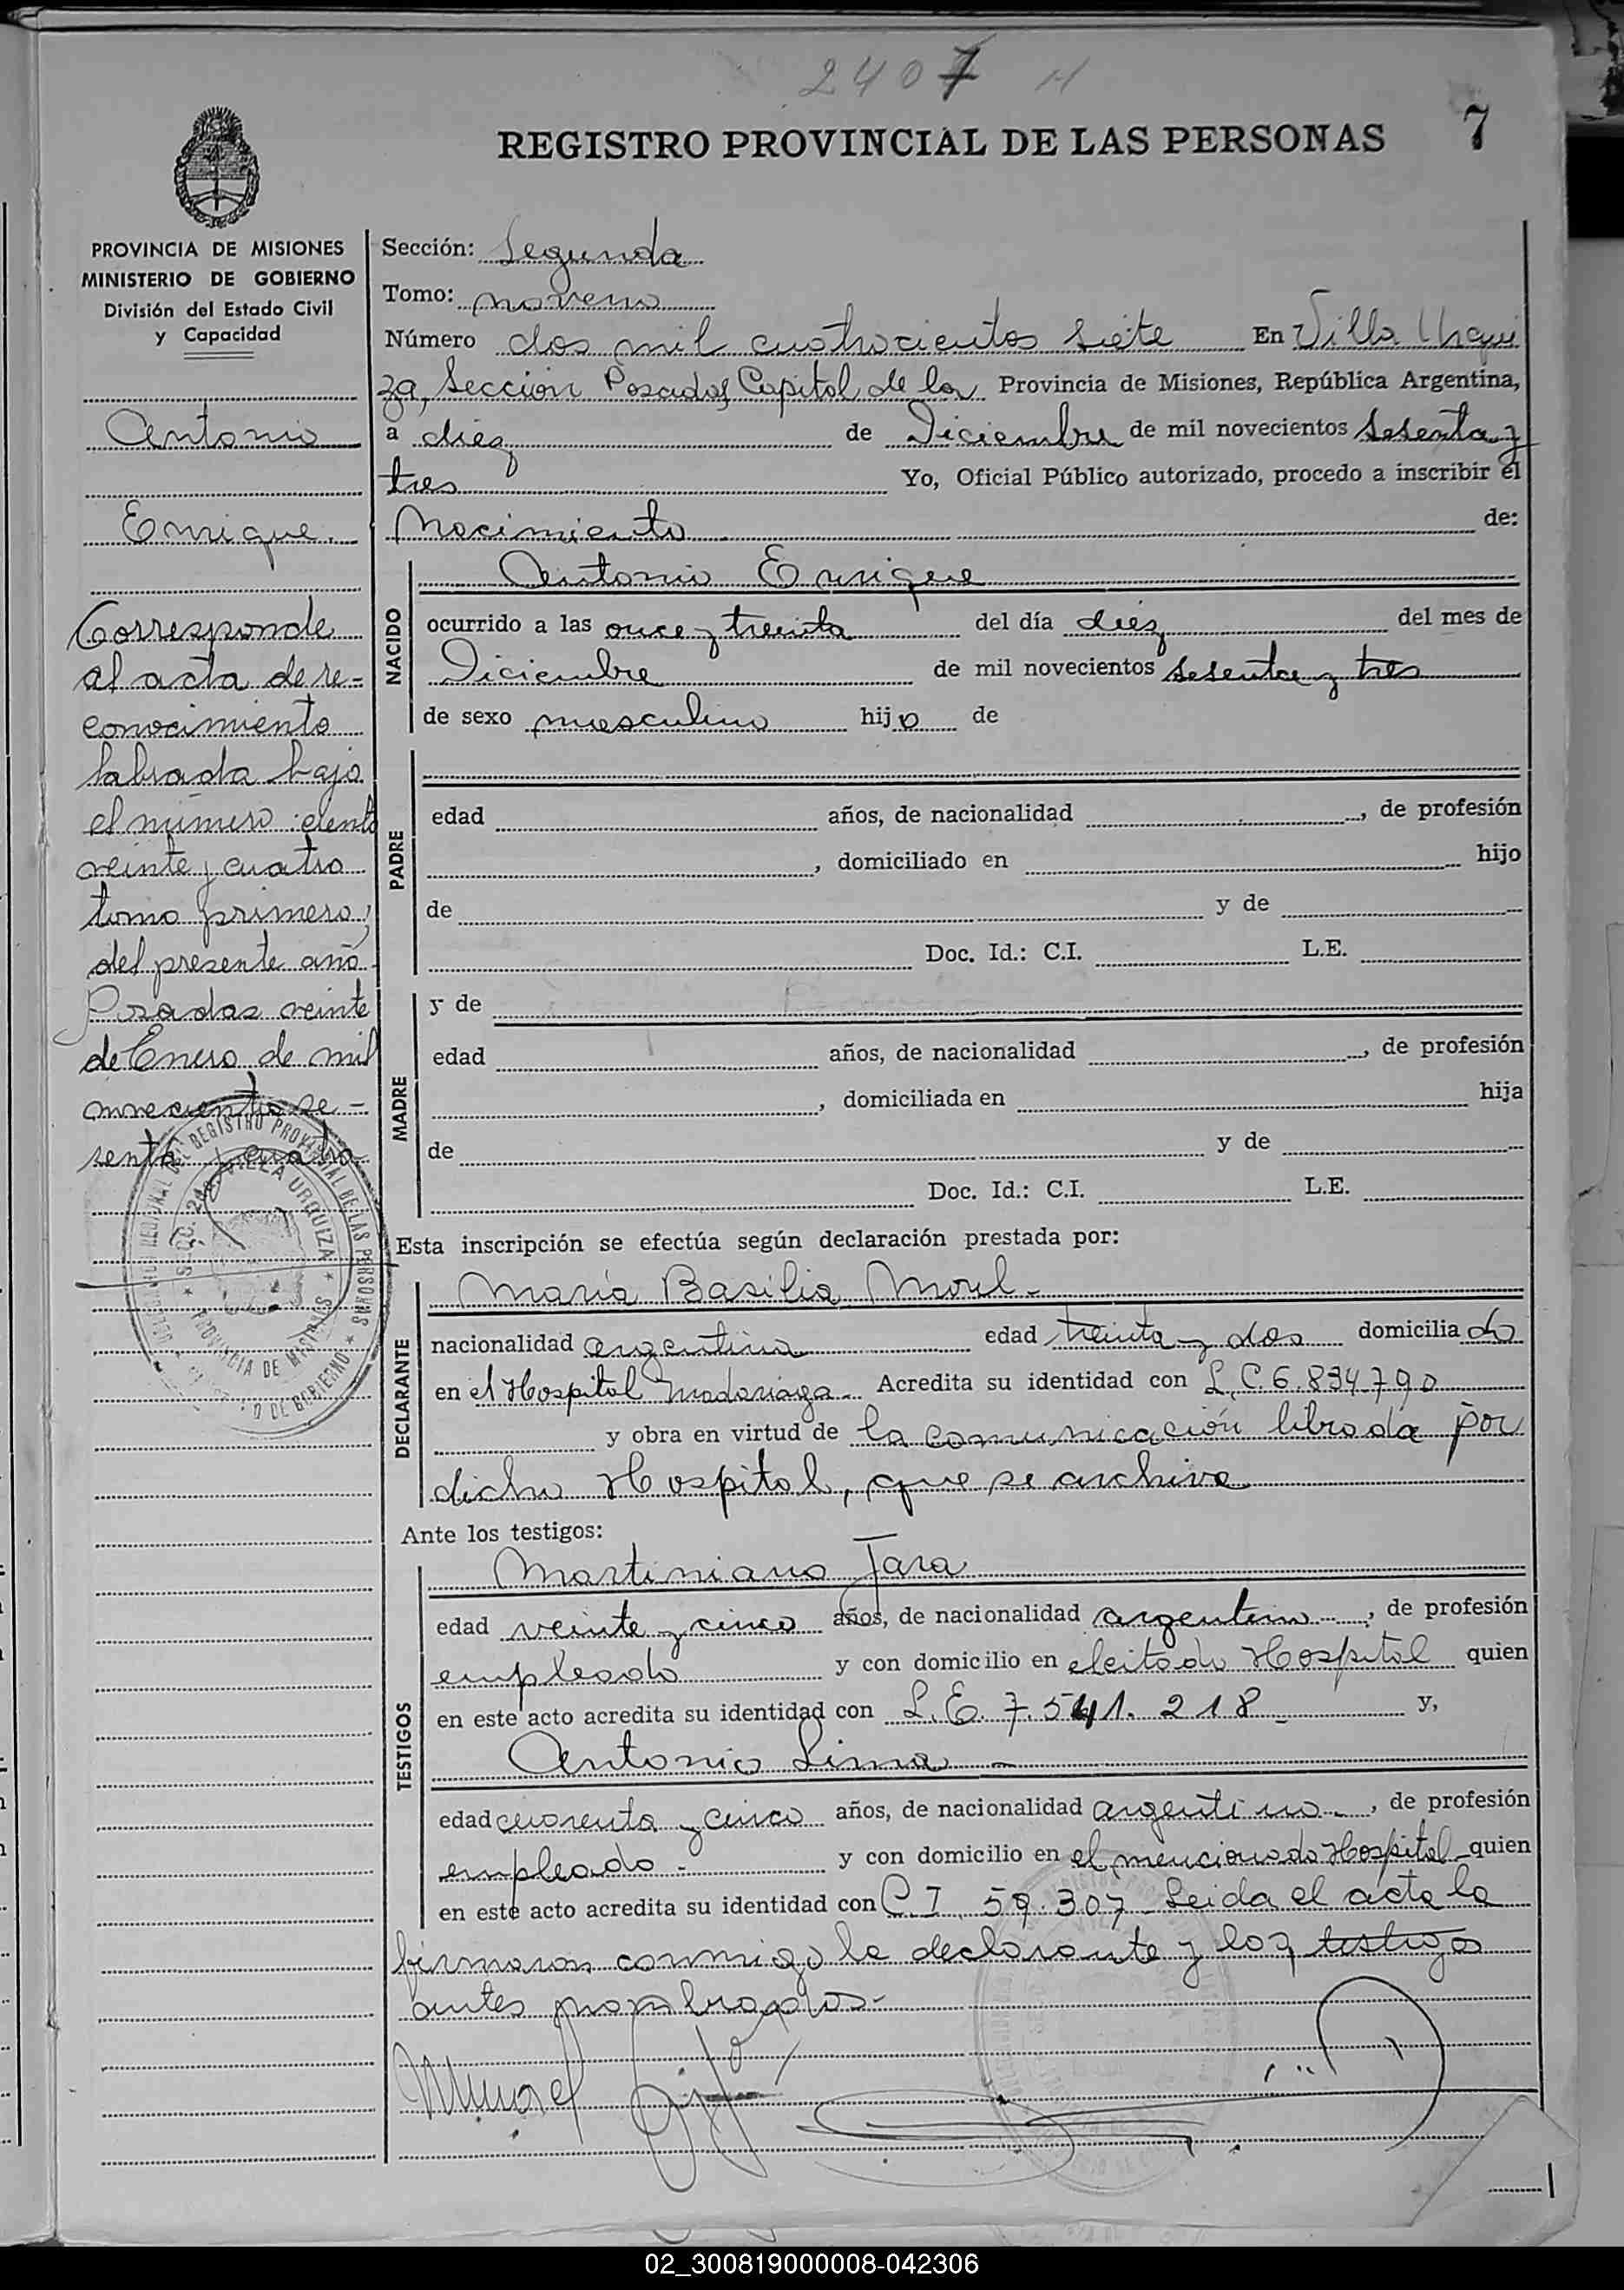 2407 H
REGISTRO PROVINCIAL DE LAS PERSONAS 7
PROVINCIA DE MISIONES
MINISTERIO DE GOBIERNO
División del Estado Civil
y Capacidad
Antonio
Enrique.
Corresponde
al acta de re-
conocimiento
labrada bajo
el número: ciento
veinte y cuatro
tomo primero,
del presente año
Posadas veinte
de Enero de mil
novecientos se-
senta y cuatro
Sección: Segunda
Tomo: noveno
Número dos mil cuatrocientos siete En Villa Urqui
za, Sección Posadas Capital de la Provincia de Misiones, República Argentina,
a diez de Diciembre de mil novecientos sesenta y
tres Yo, Oficial Público autorizado, procedo a inscribir el
Nacimiento de:
NACIDO
Antonio Enrique
ocurrido a las once y treinta del día diez del mes de
Diciembre de mil novecientos sesenta y tres
de sexo masculino hijo de
PADRE
edad años, de nacionalidad , de profesión
, domiciliado en hijo
de y de
Doc. Id.: C.I. L.E.
MADRE
y de
edad años, de nacionalidad , de profesión
, domiciliada en hija
de y de
Doc. Id.: C.I. L.E.
Esta inscripción se efectúa según declaración prestada por:
DECLARANTE
María Basilia Morel -
nacionalidad argentina edad treinta y dos domiciliada
en el Hospital Madariaga Acredita su identidad con L.C. 6.834.790
y obra en virtud de la comunicación librada por
dicho Hospital, que se archiva
Ante los testigos:
TESTIGOS
Martiniano Jara
edad veinte y cinco años, de nacionalidad argentino , de profesión
empleado y con domicilio en el citado Hospital quien
en este acto acredita su identidad con L.E. 7.541.218 - y,
Antonio Lima -
edad cuarenta y cinco años, de nacionalidad argentino , de profesión
empleado - y con domicilio en el mencionado Hospital quien
en este acto acredita su identidad con C.I 59.307 Leida el acta la
firmaron conmigo la declarante y los testigos
antes nombrados -
REGISTRO PROVINCIAL DE LAS PERSONAS
SECC. 2da VILLA URQUIZA
PROVINCIA DE MISIONES
02_300819000008-042306